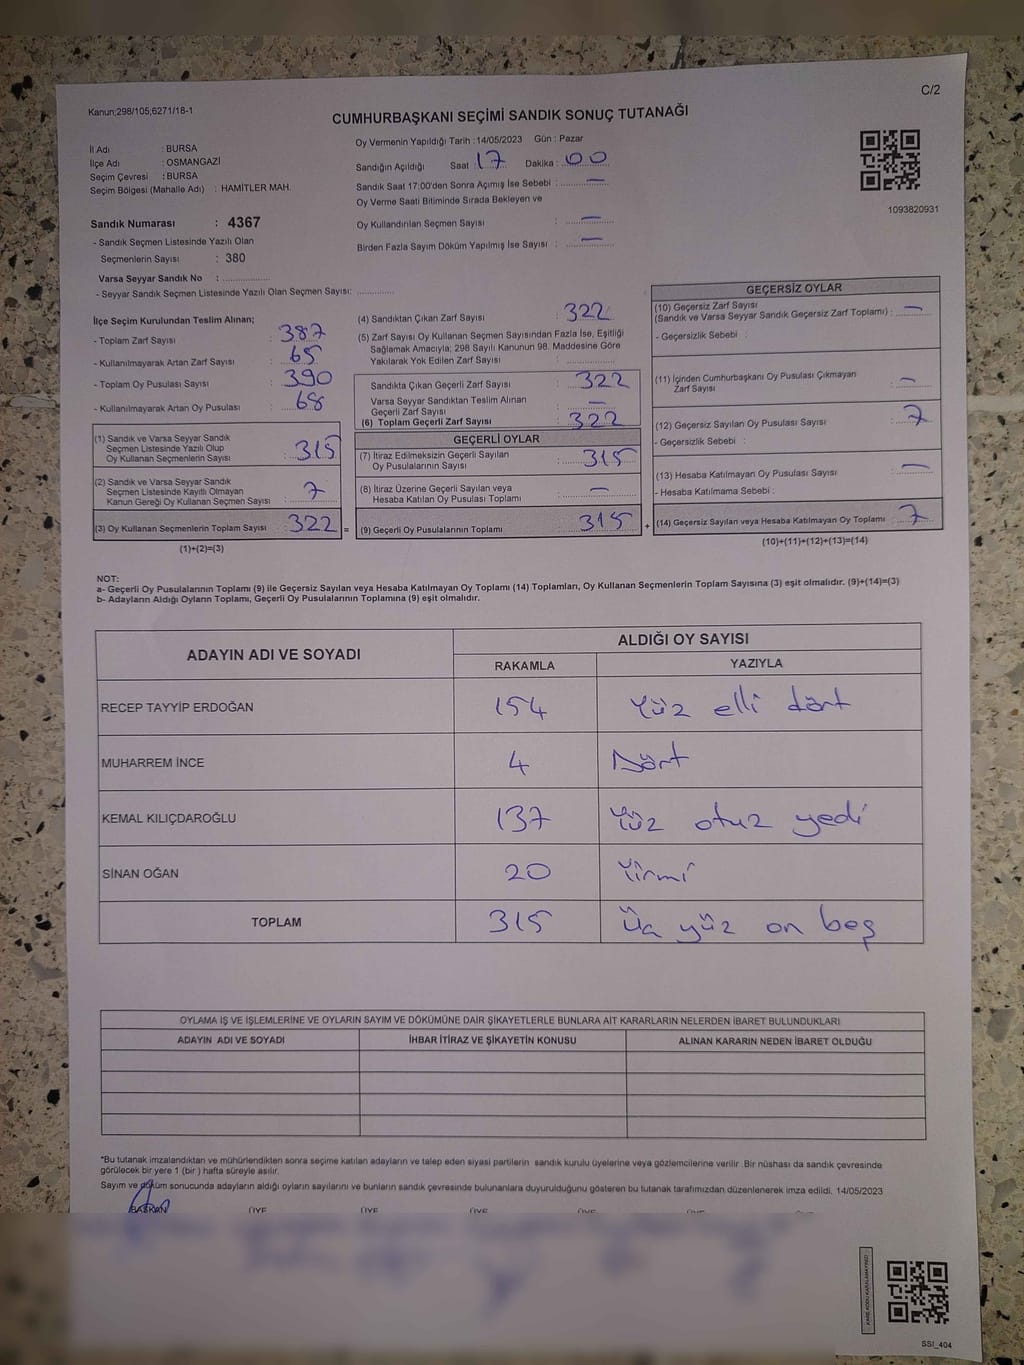 C/2
Kanun;298/105;6271/18-1
CUMHURBAŞKANI SEÇİMİ SANDIK SONUÇ TUTANAĞI
İl Adı : BURSA
İlçe Adı : OSMANGAZİ
Seçim Çevresi : BURSA
Seçim Bölgesi (Mahalle Adı) : HAMİTLER MAH.
Oy Vermenin Yapıldığı Tarih : 14/05/2023 Gün : Pazar
Sandığın Açıldığı Saat : 17 Dakika : 00
Sandık Saat 17:00'den Sonra Açımış İse Sebebi : —
Oy Verme Saati Bitiminde Sırada Bekleyen ve
Oy Kullandırılan Seçmen Sayısı : —
Birden Fazla Sayım Döküm Yapılmış İse Sayısı : —
1093820931
Sandık Numarası : 4367
- Sandık Seçmen Listesinde Yazılı Olan
Seçmenlerin Sayısı : 380
Varsa Seyyar Sandık No : ................
- Seyyar Sandık Seçmen Listesinde Yazılı Olan Seçmen Sayısı: ............
İlçe Seçim Kurulundan Teslim Alınan;
- Toplam Zarf Sayısı : 387
- Kullanılmayarak Artan Zarf Sayısı : 65
- Toplam Oy Pusulası Sayısı : 390
- Kullanılmayarak Artan Oy Pusulası : 68
(1) Sandık ve Varsa Seyyar Sandık
Seçmen Listesinde Yazılı Olup
Oy Kullanan Seçmenlerin Sayısı : 315
(2) Sandık ve Varsa Seyyar Sandık
Seçmen Listesinde Kayıtlı Olmayan
Kanun Gereği Oy Kullanan Seçmen Sayısı : 7
(3) Oy Kullanan Seçmenlerin Toplam Sayısı : 322 =
(1)+(2)=(3)
(4) Sandıktan Çıkan Zarf Sayısı : 322
(5) Zarf Sayısı Oy Kullanan Seçmen Sayısından Fazla İse, Eşitliği
Sağlamak Amacıyla; 298 Sayılı Kanunun 98. Maddesine Göre
Yakılarak Yok Edilen Zarf Sayısı : ............
Sandıkta Çıkan Geçerli Zarf Sayısı : 322
Varsa Seyyar Sandıktan Teslim Alınan
Geçerli Zarf Sayısı : —
(6) Toplam Geçerli Zarf Sayısı : 322
GEÇERLİ OYLAR
(7) İtiraz Edilmeksizin Geçerli Sayılan
Oy Pusulalarının Sayısı : 315
(8) İtiraz Üzerine Geçerli Sayılan veya
Hesaba Katılan Oy Pusulası Toplamı : —
(9) Geçerli Oy Pusulalarının Toplamı : 315 +
GEÇERSİZ OYLAR
(10) Geçersiz Zarf Sayısı
(Sandık ve Varsa Seyyar Sandık Geçersiz Zarf Toplamı) : —
- Geçersizlik Sebebi :
(11) İçinden Cumhurbaşkanı Oy Pusulası Çıkmayan
Zarf Sayısı : —
(12) Geçersiz Sayılan Oy Pusulası Sayısı : 7
- Geçersizlik Sebebi :
(13) Hesaba Katılmayan Oy Pusulası Sayısı : —
- Hesaba Katılmama Sebebi :
(14) Geçersiz Sayılan veya Hesaba Katılmayan Oy Toplamı : 7
(10)+(11)+(12)+(13)=(14)
NOT:
a- Geçerli Oy Pusulalarının Toplamı (9) ile Geçersiz Sayılan veya Hesaba Katılmayan Oy Toplamı (14) Toplamları, Oy Kullanan Seçmenlerin Toplam Sayısına (3) eşit olmalıdır. (9)+(14)=(3)
b- Adayların Aldığı Oyların Toplamı, Geçerli Oy Pusulalarının Toplamına (9) eşit olmalıdır.
ADAYIN ADI VE SOYADI
ALDIĞI OY SAYISI
RAKAMLA YAZIYLA
RECEP TAYYİP ERDOĞAN 154 Yüz elli dört
MUHARREM İNCE 4 Dört
KEMAL KILIÇDAROĞLU 137 Yüz otuz yedi
SİNAN OĞAN 20 Yirmi
TOPLAM 315 Üç yüz on beş
OYLAMA İŞ VE İŞLEMLERİNE VE OYLARIN SAYIM VE DÖKÜMÜNE DAİR ŞİKAYETLERLE BUNLARA AİT KARARLARIN NELERDEN İBARET BULUNDUKLARI
ADAYIN ADI VE SOYADI İHBAR İTİRAZ VE ŞİKAYETİN KONUSU ALINAN KARARIN NEDEN İBARET OLDUĞU
*Bu tutanak imzalandıktan ve mühürlendikten sonra seçime katılan adayların ve talep eden siyasi partilerin sandık kurulu üyelerine veya gözlemcilerine verilir. Bir nüshası da sandık çevresinde
görülecek bir yere 1 (bir ) hafta süreyle asılır.
Sayım ve döküm sonucunda adayların aldığı oyların sayılarını ve bunların sandık çevresinde bulunanlara duyurulduğunu gösteren bu tutanak tarafımızdan düzenlenerek imza edildi. 14/05/2023
BAŞKAN ÜYE ÜYE ÜYE ÜYE ÜYE ÜYE
SSI_404